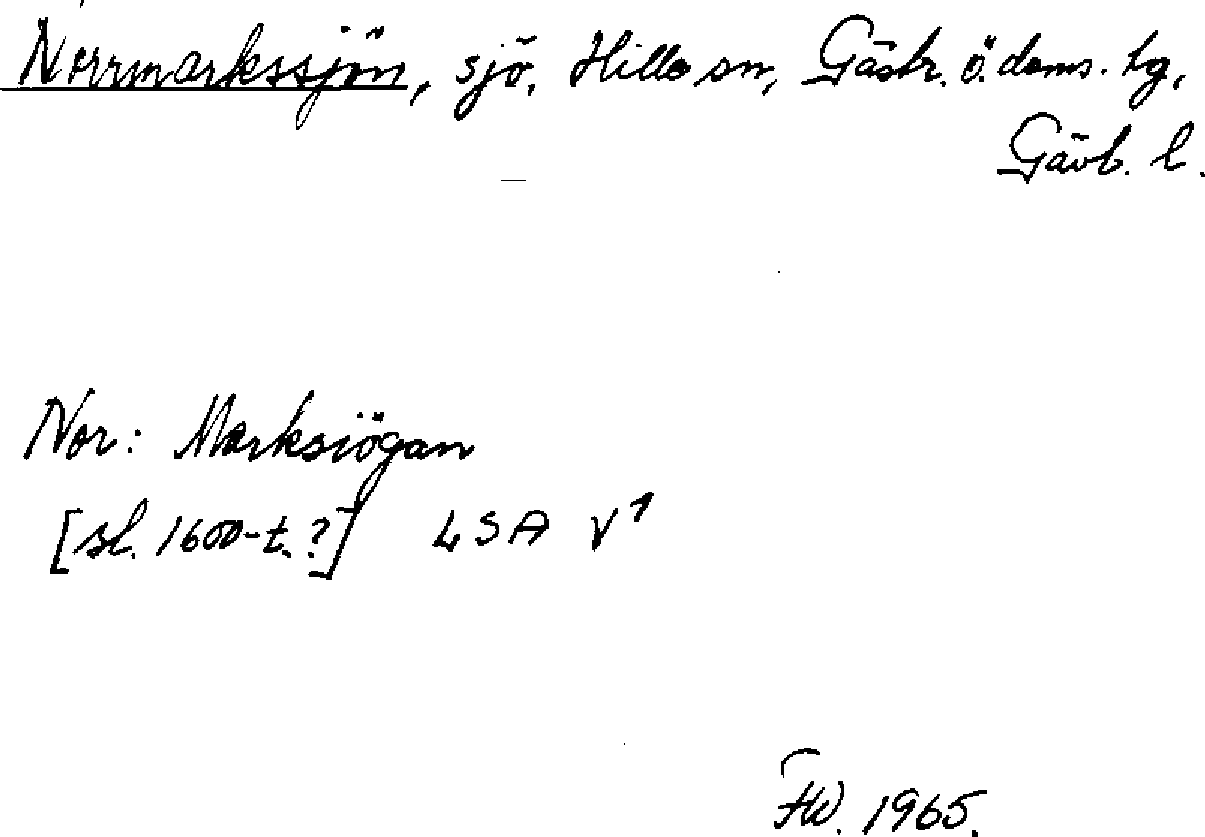 Norrmarkssjön, sjö, Hille sn, Gästr. ö. doms. tg,
Gävb. l.
Nor: Marksiögan
[sl. 1600-t.?] LSA V1
FW. 1965.